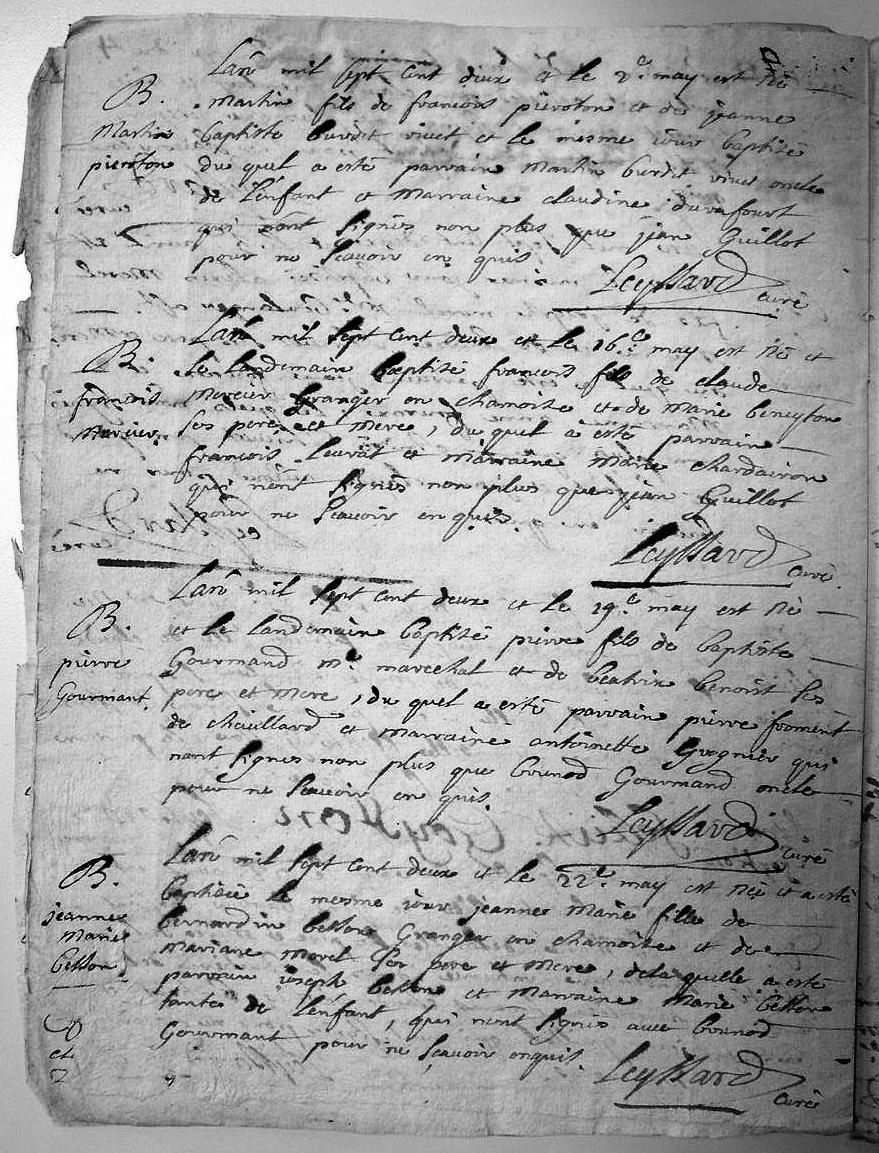 B.
Martin
pieroton
Lan mil sept cent deux et le 2e may est né
Martin fils de françois pieroton et de jeanne
baptiste burdit vivet et le mesme jour baptisé
du quel a esté parrain Martin burdit vivet oncle
de l'enfant et Marraine claudine durafourt
qui n'ont signés non plus que jean Guillot
pour ne scavoir en quis
Leyssard curé
B.
françois
Mercier
Lan mil sept cent deux et le 16e may est né et
le landemain baptisé françois fils de claude
Mercier Granger en chamoise et de Marie beneyton
ses pere et Mere, du quel a esté parrain
françois Leurat et Marraine Marie chardeiron
qui n'ont signés non plus que jean Guillot
pour ne scavoir en quis.
Leyssard curé.
B.
pierre
Gourmant.
Lan mil sept cent deux et le 19e may est né
et le landemain baptisé pierre fils de baptiste
Gourmand me marechal et de beatrix benoist ses
pere et Mere, du quel a esté parrain pierre froment
de chaillard et Marraine antoinette Grognier qui
nont signés non plus que bounod Gourmand oncle
pour ne scavoir en quis.
Leyssard curé
B.
jeanne
Marie
besson
Lan mil sept cent deux et le 22e may est née et a esté
baptisée le mesme jour jeanne Marie fille de
bernardin besson Granger en chamoise et de
Mariane Morel ses pere et Mere, de la quelle a esté
parrain joseph besson et Marraine Marie besson
tante de l'enfant, qui n'ont signés avec bounod
Gourmant pour ne scavoir enquis.
et
2
Leyssard
curé